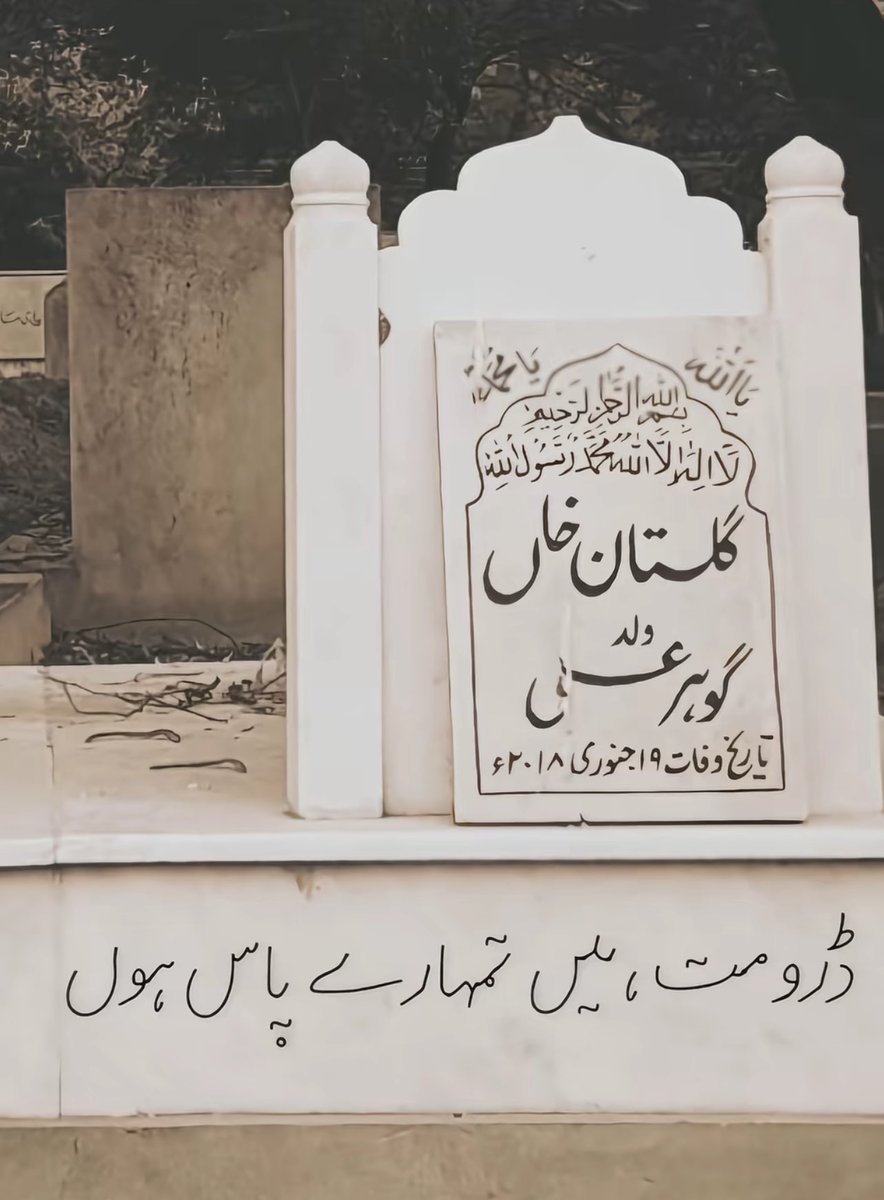 یا اللہ یا محمد
بسم اللہ الرحمن الرحیم
لَا اِلٰہَ اِلَّا اللہُ مُحَمَّدٌ رَّسُولُ اللہِ
گلستان خاں
ولد
گوہر علی
تاریخ وفات ۱۹ جنوری ۲۰۱۸ء
ڈرو مت، میں تمہارے پاس ہوں